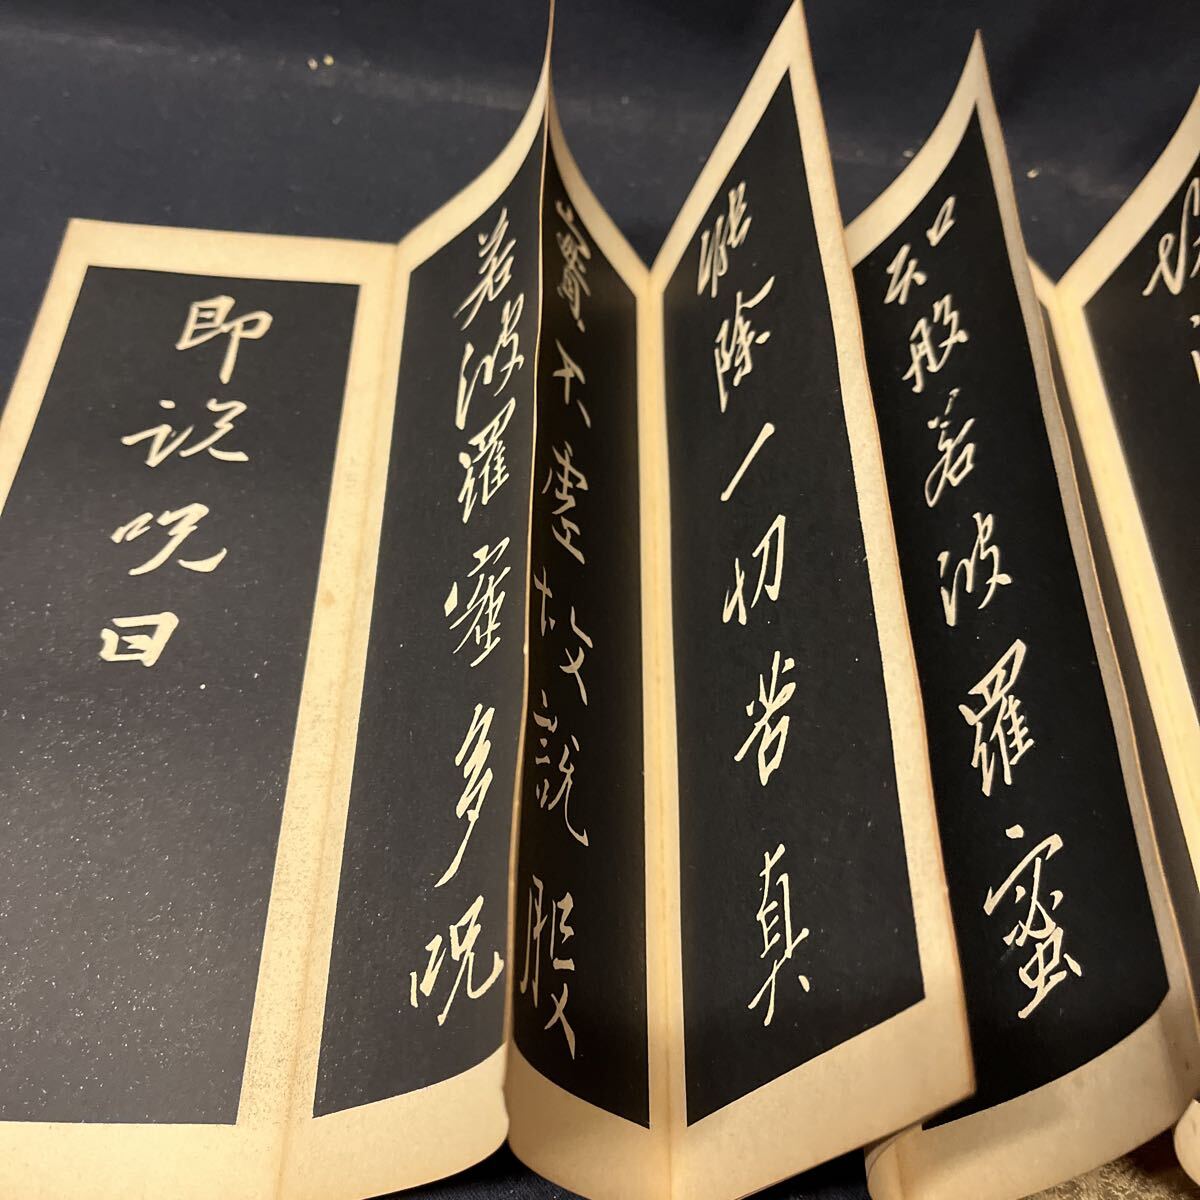 知般若波羅蜜
能除一切苦真
實不虛故說般
若波羅蜜多呪
即説呪曰